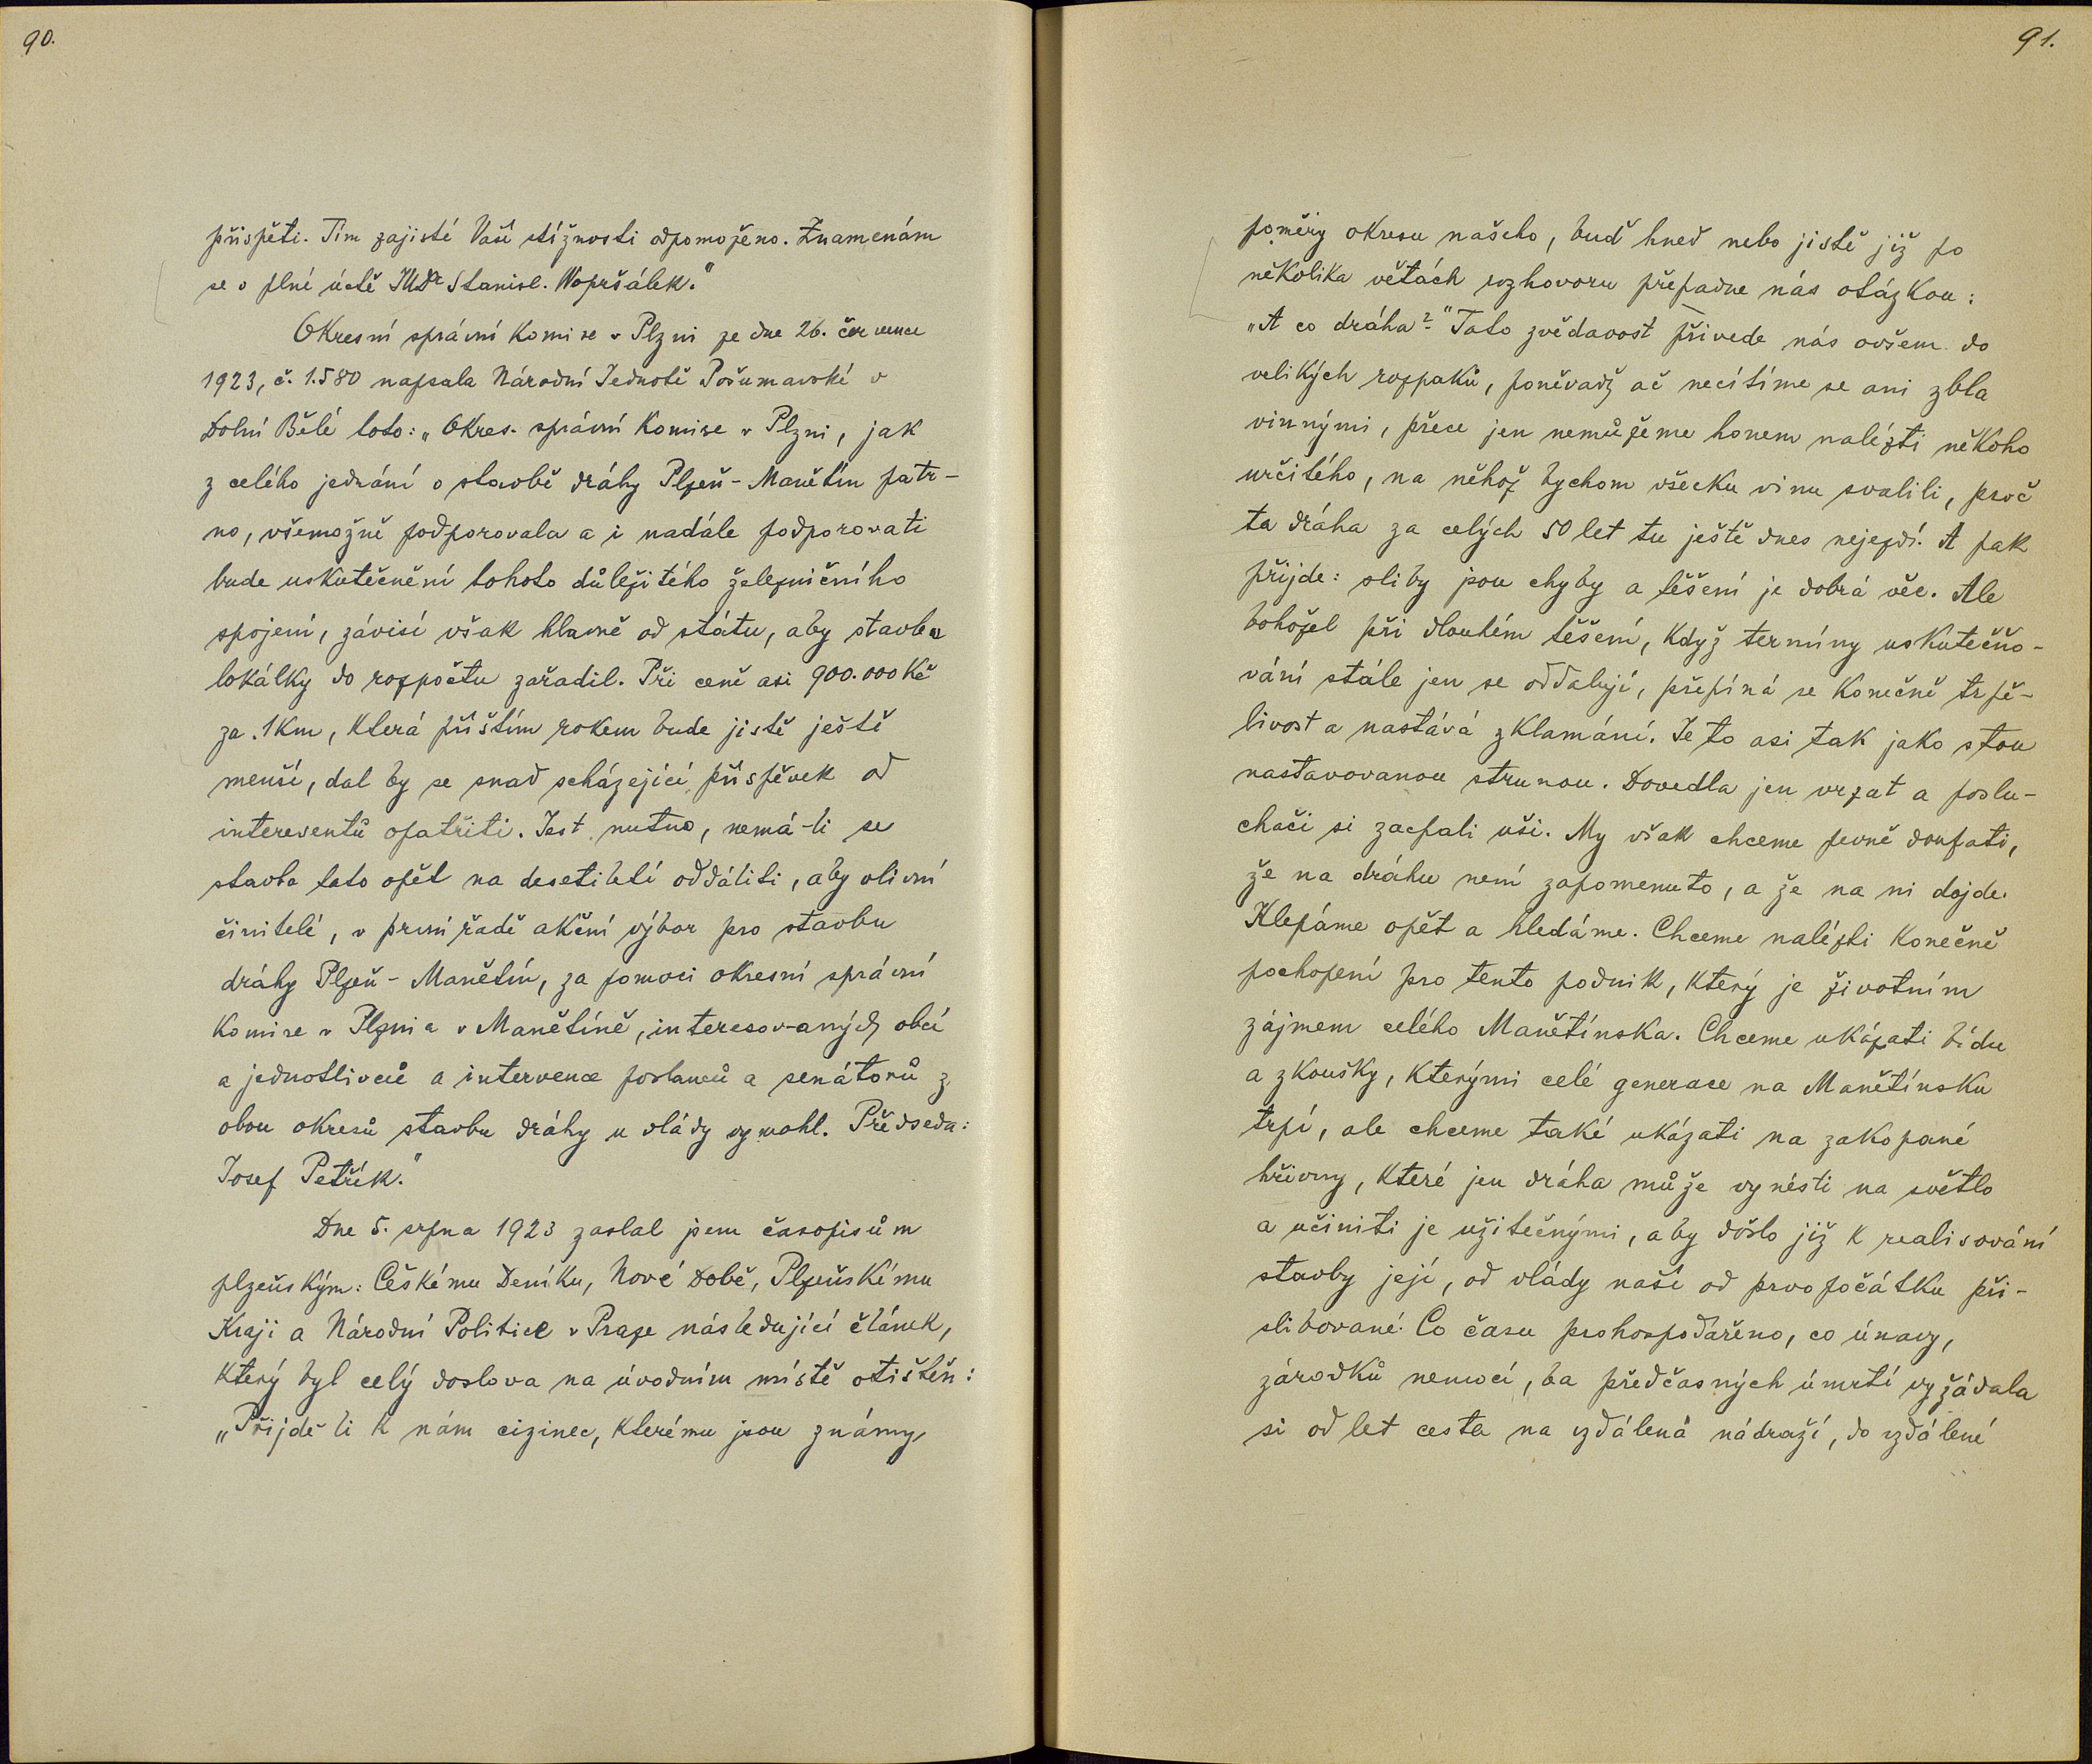 90.
přispěti. Tím zajisté Vaší stížnosti odpomoženo. Znamenám
se v plné úctě JUDr Stanisl. Wopršálek."
Okresní správní komise v Plzni ze dne 26. července
1923, č. 1.580 napsala Národní Jednotě Pošumavské v
Dolní Bělé toto: „Okres. správní komise v Plzni, jak
z celého jednání o stavbě dráhy Plzeň - Manětín patr-
no, všemožně podporovala a i nadále podporovati
bude uskutečnění tohoto důležitého železničního
spojení, závisí však hlavně od státu, aby stavbu
lokálky do rozpočtu zařadil. Při ceně asi 900.000 Kč
za 1 km, která příštím rokem bude jistě ještě
menší, dal by se snad scházející příspěvek od
interesentů opatřiti. Jest nutno, nemá-li se
stavba tato opět na desetiletí oddáliti, aby vlivní
činitelé, v první řadě akční výbor pro stavbu
dráhy Plzeň - Manětín, za pomoci okresní správní
komise v Plzni a v Manětíně, interesovaných obcí
a jednotlivců a intervence poslanců a senátorů z
obou okresů stavbu dráhy u vlády vymohl. Předseda:
Josef Petřík."
Dne 5. srpna 1923 zaslal jsem časopisům
plzeňským: Českému Deníku, Nové Době, Plzeňskému
Kraji a Národní Politice v Praze následující článek,
který byl celý doslova na úvodním místě otištěn:
„Přijde-li k nám cizinec, kterému jsou známy
91.
poměry okresu našeho, buď hned nebo jistě již po
několika větách rozhovoru přepadne nás otázkou:
„A co dráha?" Tato zvědavost přivede nás ovšem do
velikých rozpaků, poněvadž ač necítíme se ani zbla
vinnými, přece jen nemůžeme honem nalézti někoho
určitého, na něhož bychom všecku vinu svalili, proč
ta dráha za celých 50 let tu ještě dnes nejezdí. A pak
přijde: sliby jsou chyby a těšení je dobrá věc. Ale
bohožel při dlouhém těšení, když termíny uskutečňo-
vání stále jen se oddalují, přepíná se konečně trpě-
livost a nastává zklamání. Je to asi tak jako s tou
nastavovanou strunou. Dovedla jen vrzat a poslu-
chači si zacpali uši. My však chceme pevně doufati,
že na dráhu není zapomenuto, a že na ni dojde.
Klepáme opět a hledáme. Chceme nalézti konečně
pochopení pro tento podnik, který je životním
zájmem celého Manětínska. Chceme ukázati bídu
a zkoušky, kterými celé generace na Manětínsku
trpí, ale chceme také ukázati na zakopané
hřivny, které jen dráha může vynésti na světlo
a učiniti je užitečnými, aby došlo již k realisování
stavby její, od vlády naší od prvopočátku při-
slibované. Co času prohospodařeno, co únavy,
zárodků nemocí, ba předčasných úmrtí vyžádala
si od let cesta na vzdálená nádraží, do vzdálené